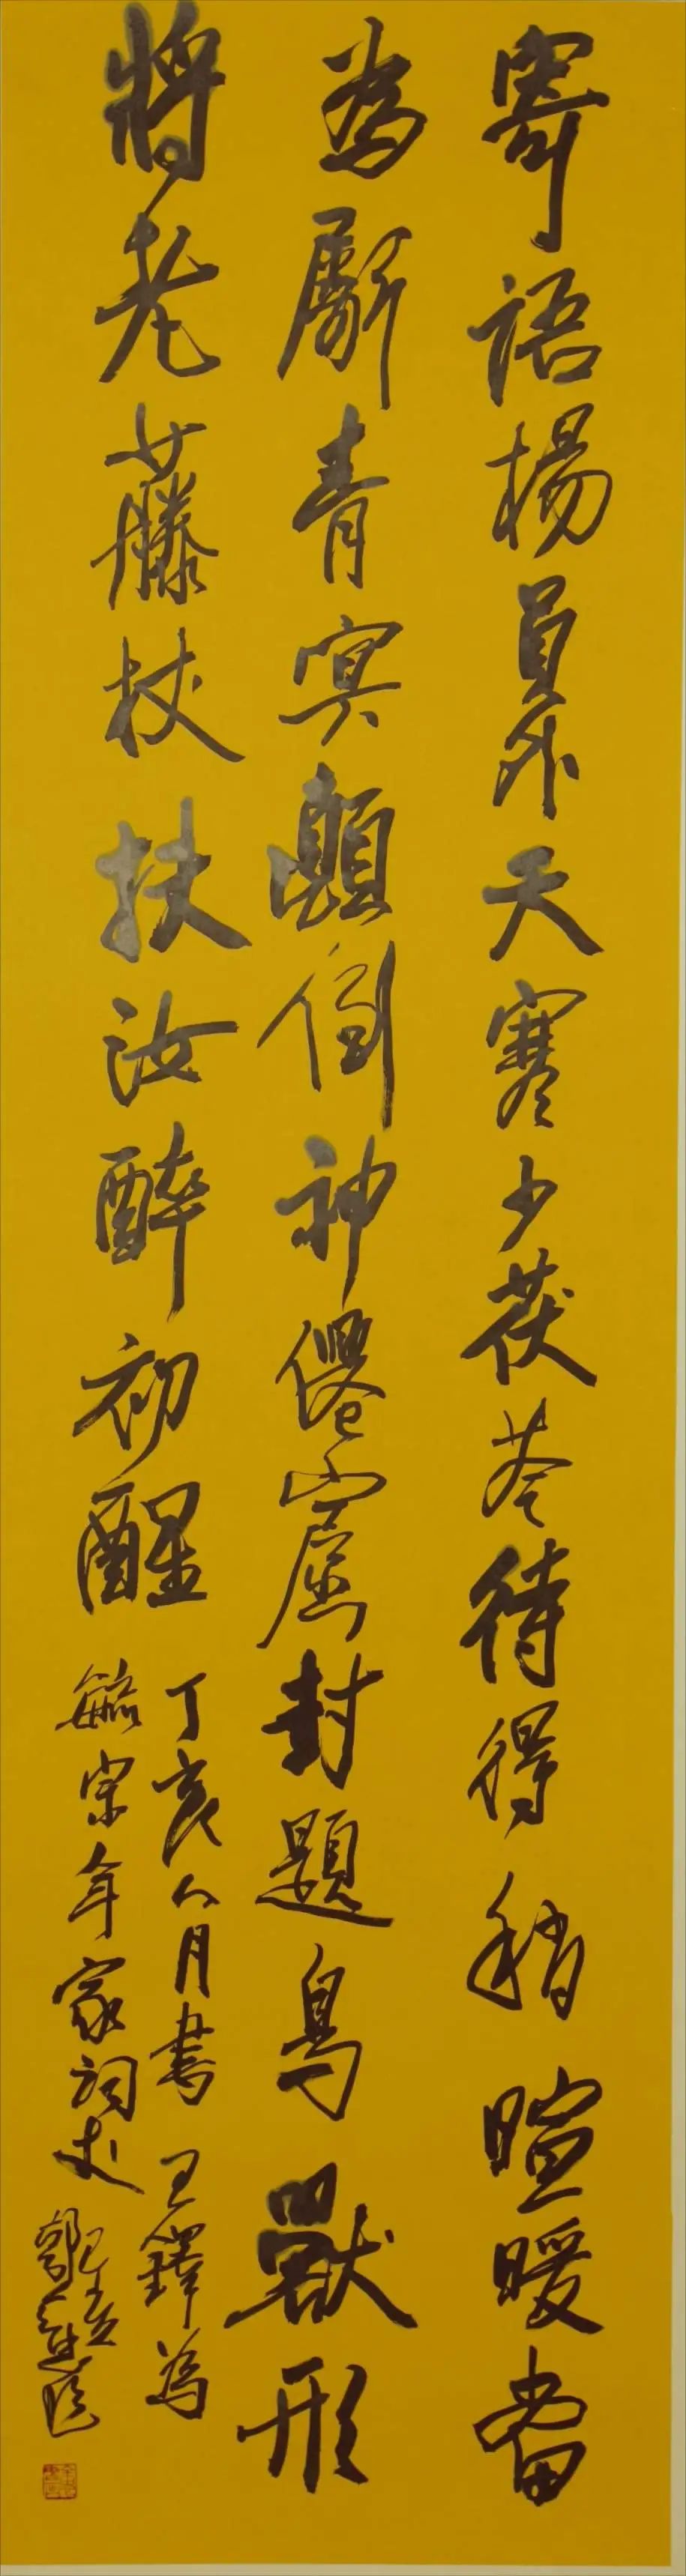 寄語楊員外天寒少茯苓待得稍暄暖當
為劚青冥顛倒神僊窟封題鳥獸形
將老藤杖扶汝醉初醒
丁亥八月書王鐸為
毓宗年家詞丈